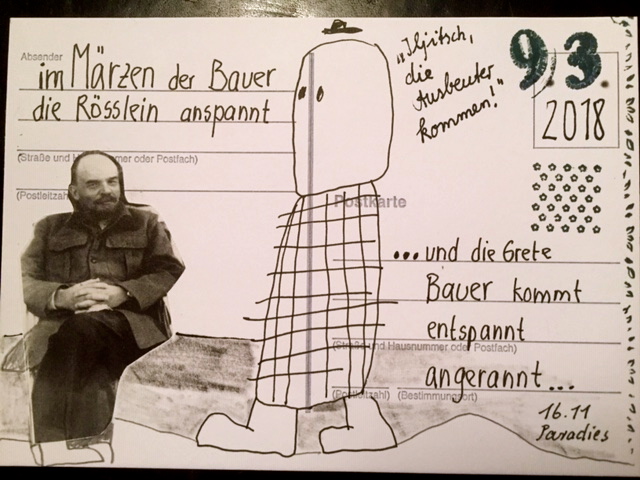 Absender
im Märzen der Bauer
die Rösslein anspannt
(Straße und Hausnummer oder Postfach)
(Postleitzahl
„Iljitsch,
die
Ausbeuter
kommen!"
9.3.
2018
Postkarte
...und die Grete
Bauer kommt
entspannt
(Straße und Hausnummer oder Postfach)
angerannt...
(Postleitzahl) (Bestimmungsort)
16.11
Paradies